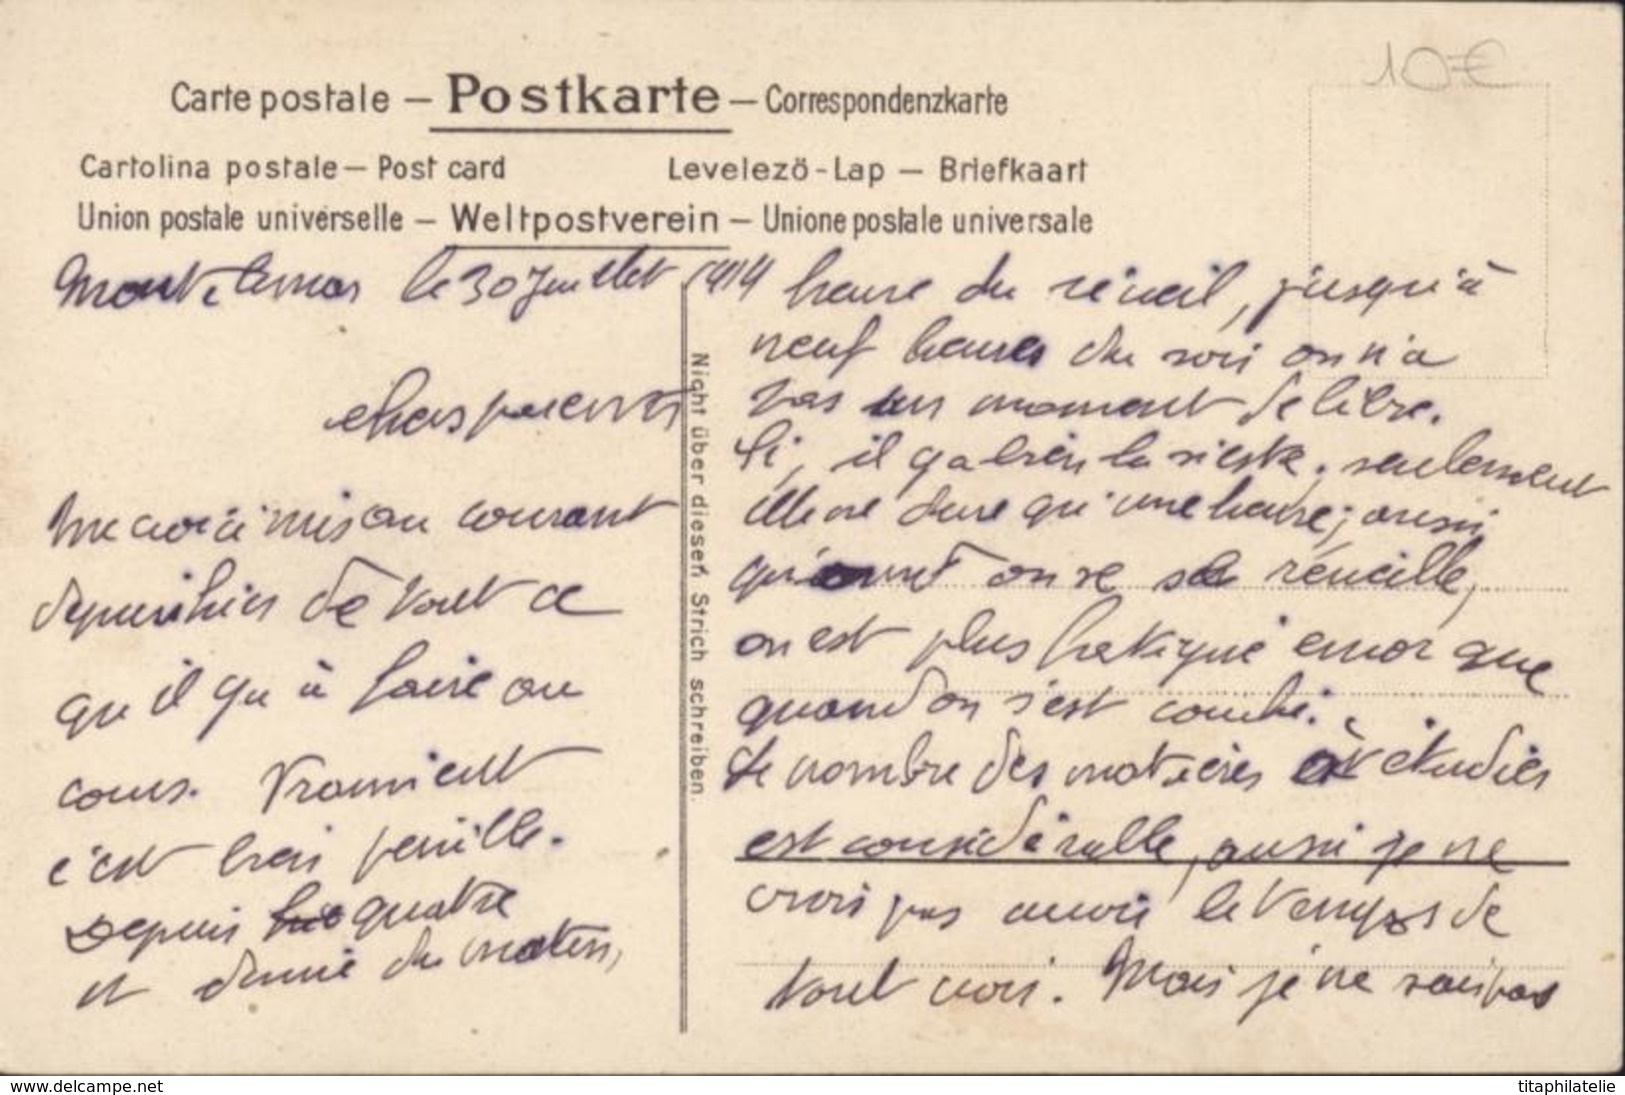 10€
Carte postale – Postkarte – Correspondenzkarte
Cartolina postale – Post card Levelezö-Lap – Briefkaart
Union postale universelle – Weltpostverein – Unione postale universale
le 30 Juillet 1914
chers parents
me voici mis au courant
depuis hier de tout ce
qu'il y a à faire au
cours. Vraiment
c'est bien pénible.
Depuis quatre
et demie du matin,
Nicht über diesen Strich schreiben.
heure du réveil, jusqu'à
neuf heures du soir on n'a
pas un moment de libre.
Si, il y a bien la sieste, seulement
elle ne dure qu'une heure; aussi
quand on se réveille,
on est plus fatigué encor que
quand on s'est couché.
Le nombre des matières à étudier
est considérable, aussi je ne
crois pas avoir le temps de
tout voir. Mais je ne sais pas
www.delcampe.net
titaphilatelie